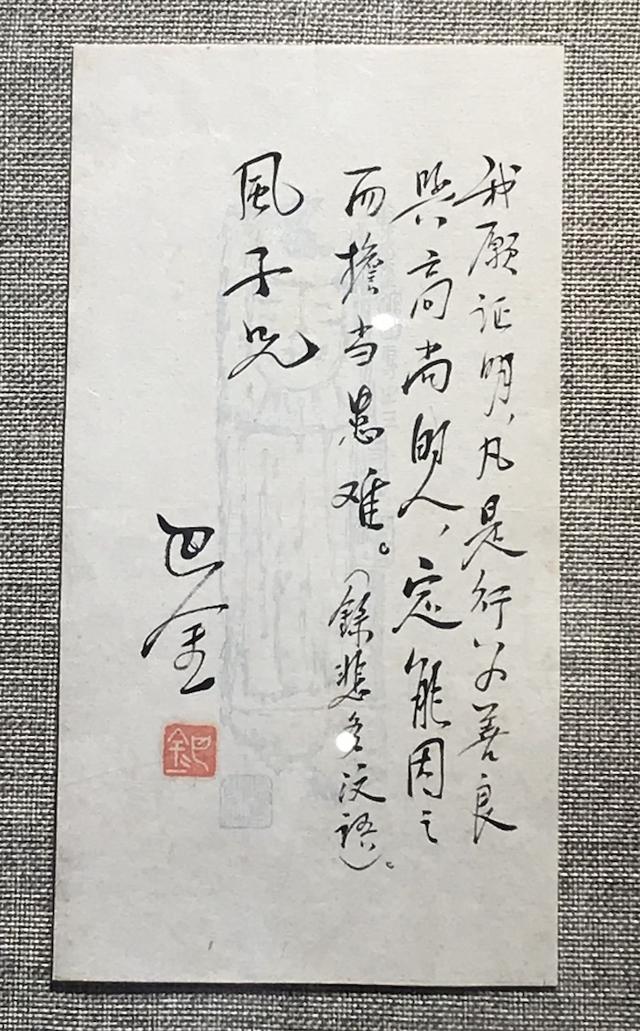 我愿证明,凡是行为善良
與高尚的人,定能因之
而擔当患难。(錄悲多汶語)。
風子兄
巴金
巴金